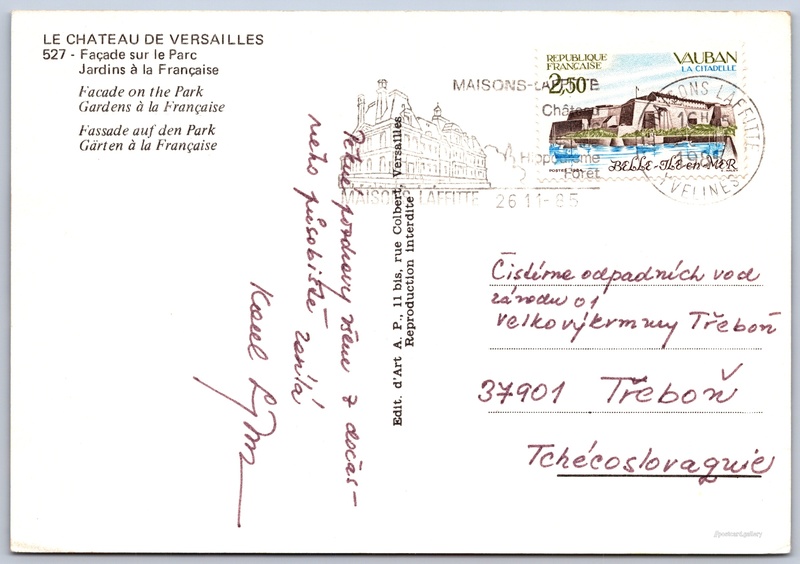 LE CHATEAU DE VERSAILLES
527 - Façade sur le Parc
Jardins à la Française
Facade on the Park
Gardens à la Française
Fassade auf den Park
Gärten à la Française
REPUBLIQUE
FRANÇAISE
2,50
VAUBAN
LA CITADELLE
BELLE-ILE-en-MER
POSTES
MAISONS-LAFFITTE
Château
Hippodrome
Forêt
MAISONS LAFFITTE
26 11-85
MAISONS LAFFITTE
YVELINES
Edit. d'Art A. P., 11 bis, rue Colbert, Versailles
Reproduction interdite
pozdravy všem z dočas-
ného působiště zasílá
Karel
Čistírna odpadních vod
závodu 01
Velkovýkrmny Třeboň
37901 Třeboň
Tchécoslovaquie